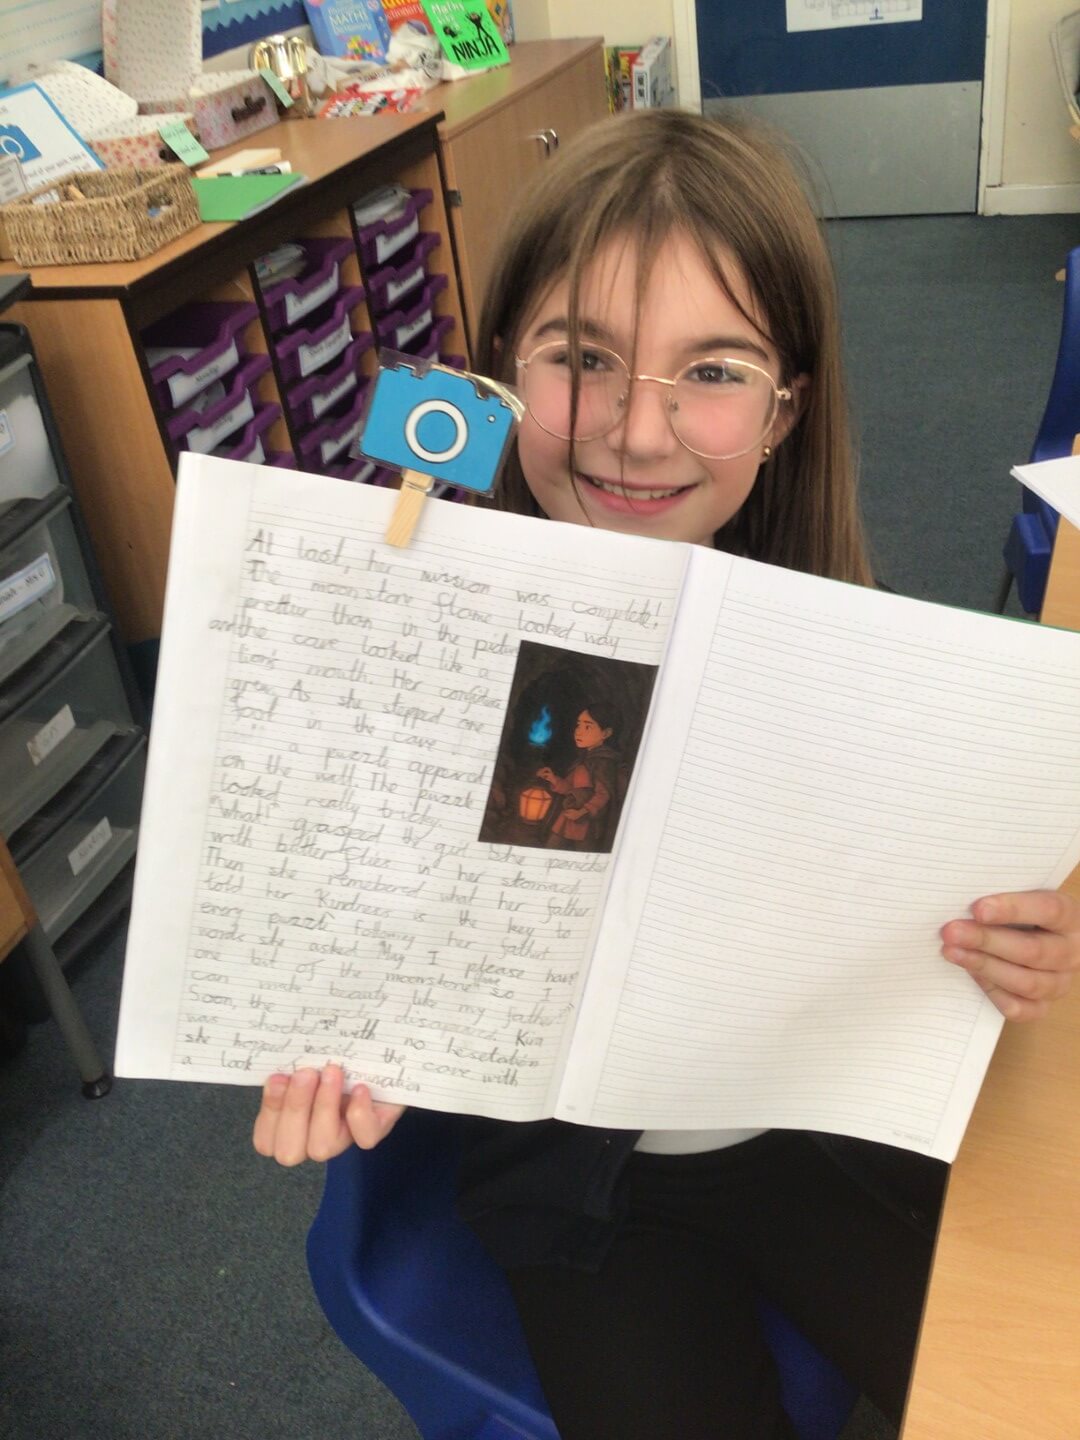 At last, her mission was complete!
The moonstone flame looked way
prettier than in the picture
and the cave looked like a
lion's mouth. Her confidence
grew. As she stepped one
foot in the cave
a puzzle appeared
on the wall. The puzzle
looked really tricky.
"What!" gasped the girl. She panicked
with butterflies in her stomach.
Then she remebered what her father
told her "Kindness is the key to
every puzzle". Following her father's
words she asked "May I please have
one bit of the moonstone flame so I
can make beauty like my father?"
Soon, the puzzle disapeared. Kira
was shocked with no hesetation
she hopped inside the cave with
a look of determination
MATHS
Dictionary
Dictionary
Maths
NINJA